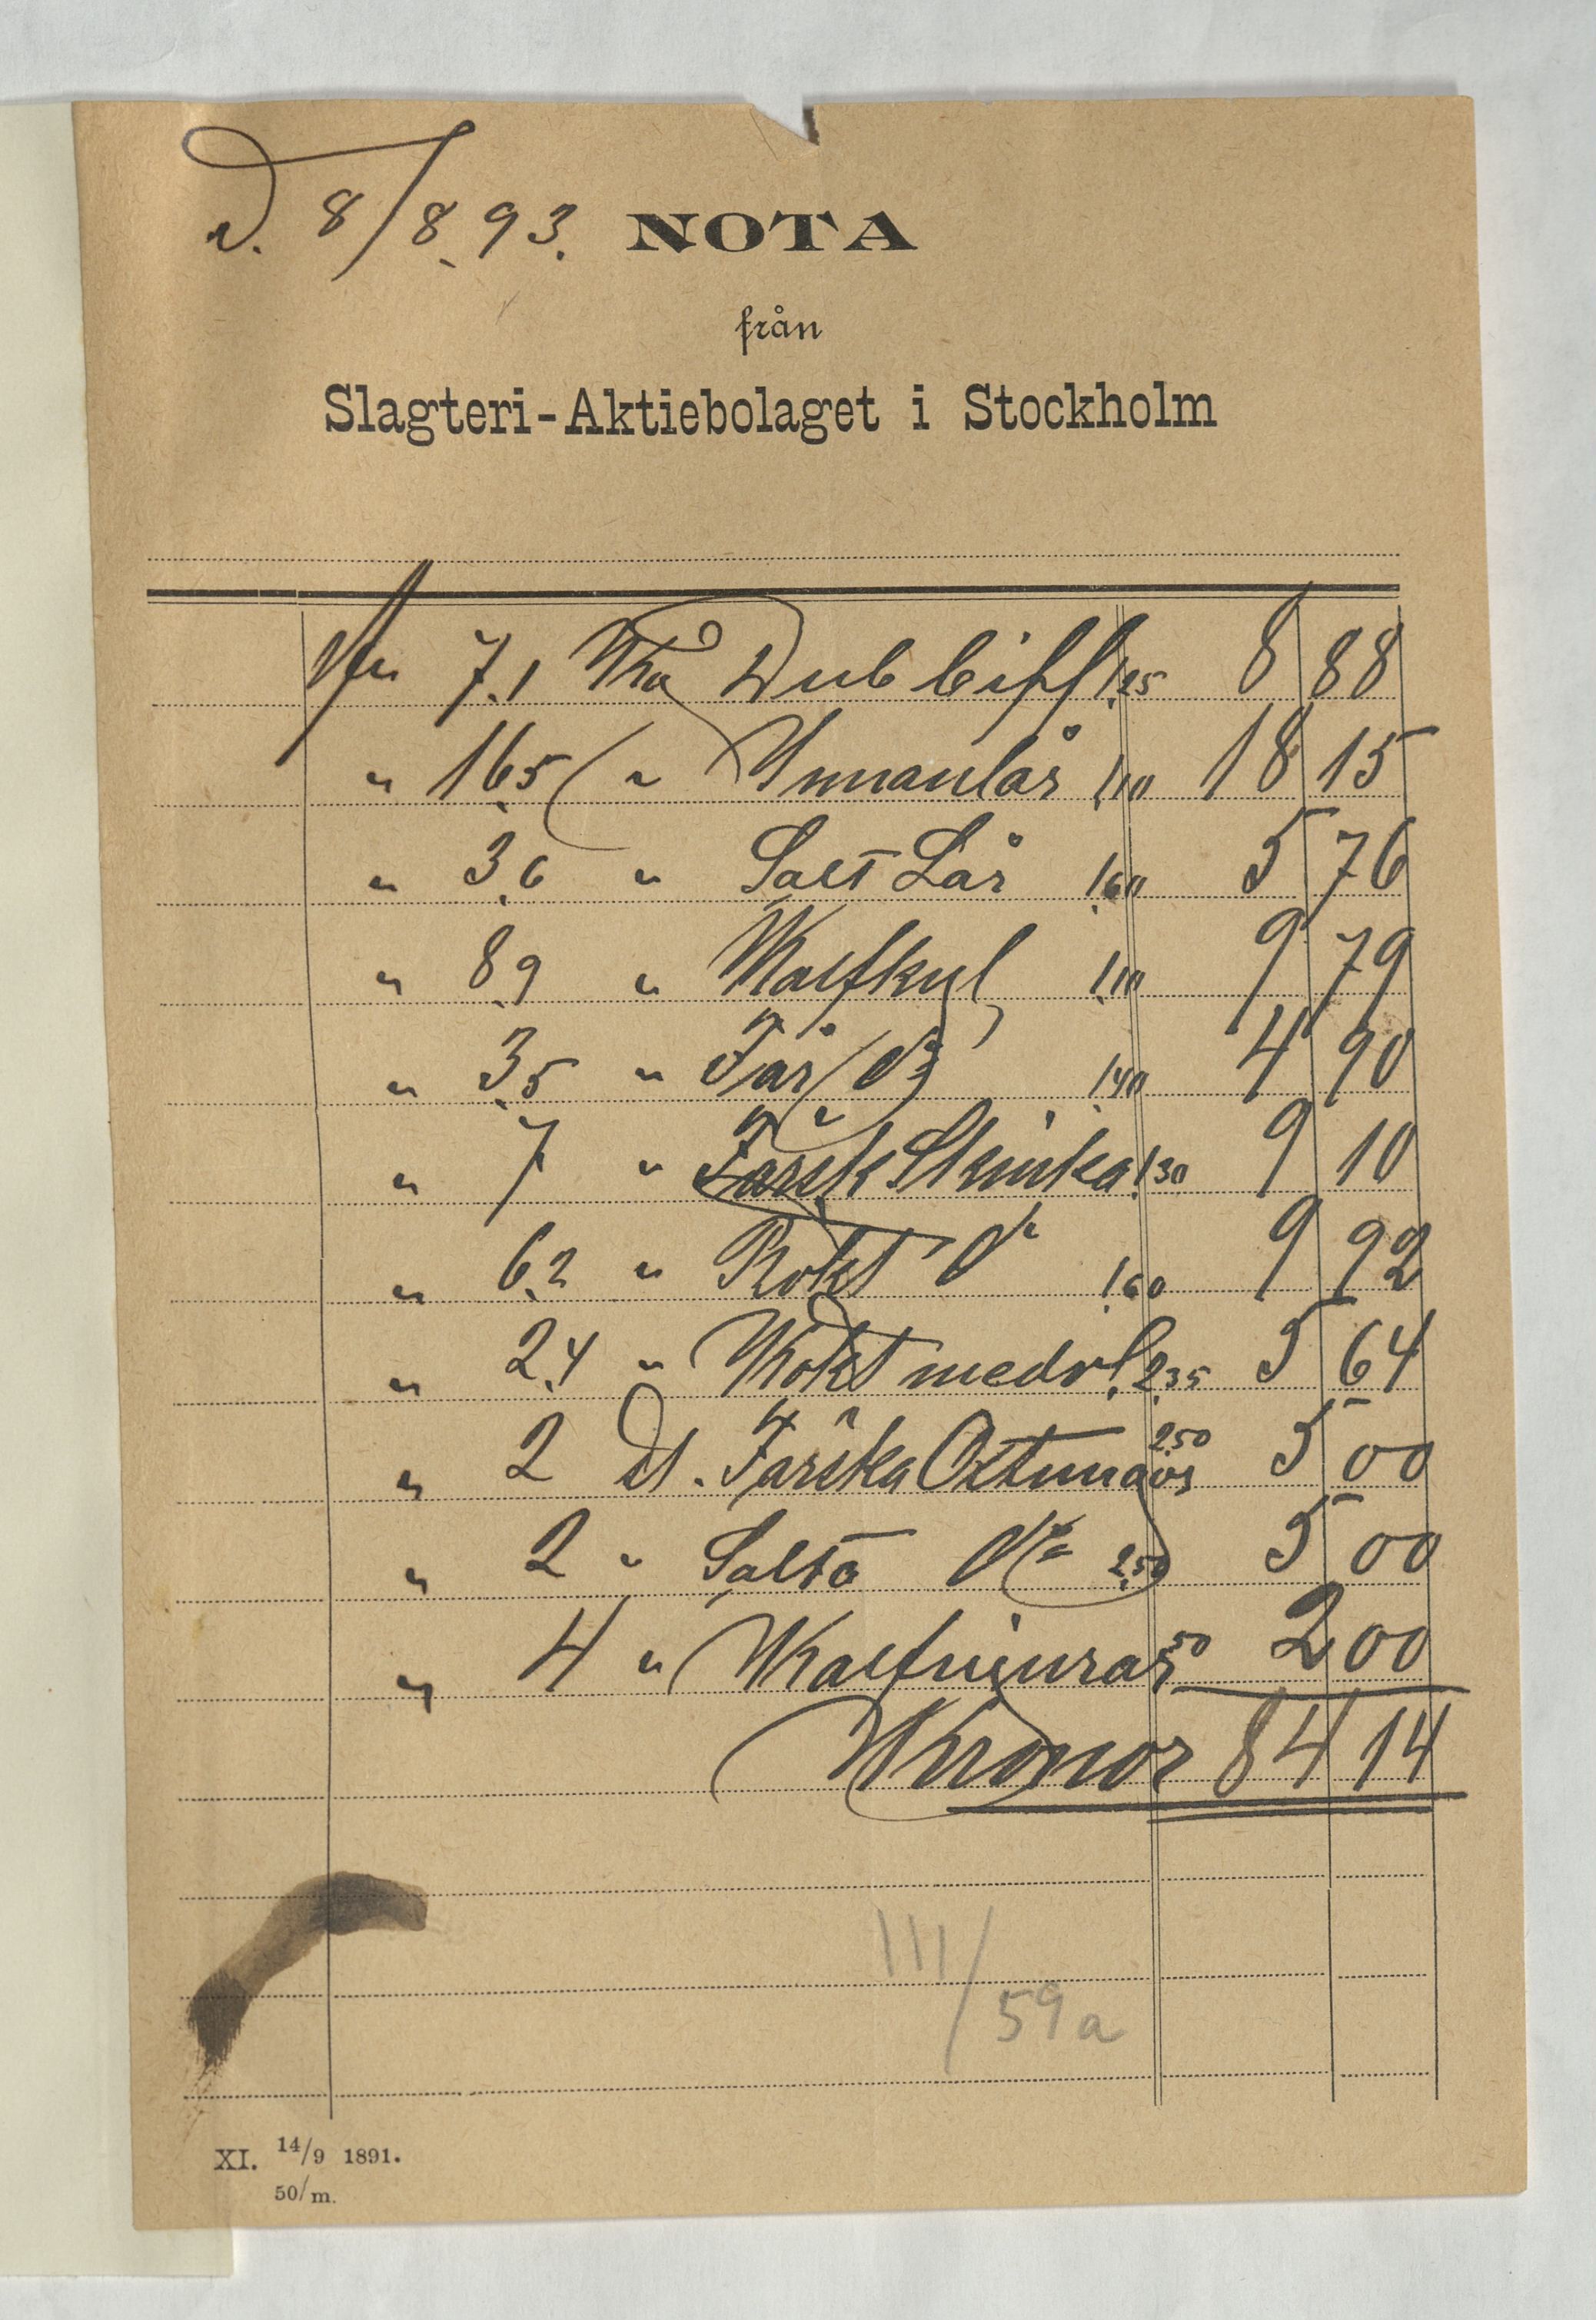 d. 8/8 93. NOTA
från
Slagteri-Aktiebolaget i Stockholm
7.1 Ko Dubbeiff 1.25 8 88
" 16.5 " Innanlår 1.10 18 15
" 3.6 " Salt Lår 1.60 5 76
" 8.9 " Kalfkyl 1.10 9 79
" 3.5 " Får do 1.40 4 90
" 7 " Färsk Skinka 1.30 9 10
" 6.2 " Rökt do 1.60 9 92
" 2.4 " Kokt medv. 2.35 5 64
" 2 St. Färska Oxtungor 2.50 5 00
" 2 " Salta do 2.50 5 00
" 4 " Kalfnjurar 50 2 00
Kronor 84 14
III/59a
XI. 14/9 1891.
50/m.